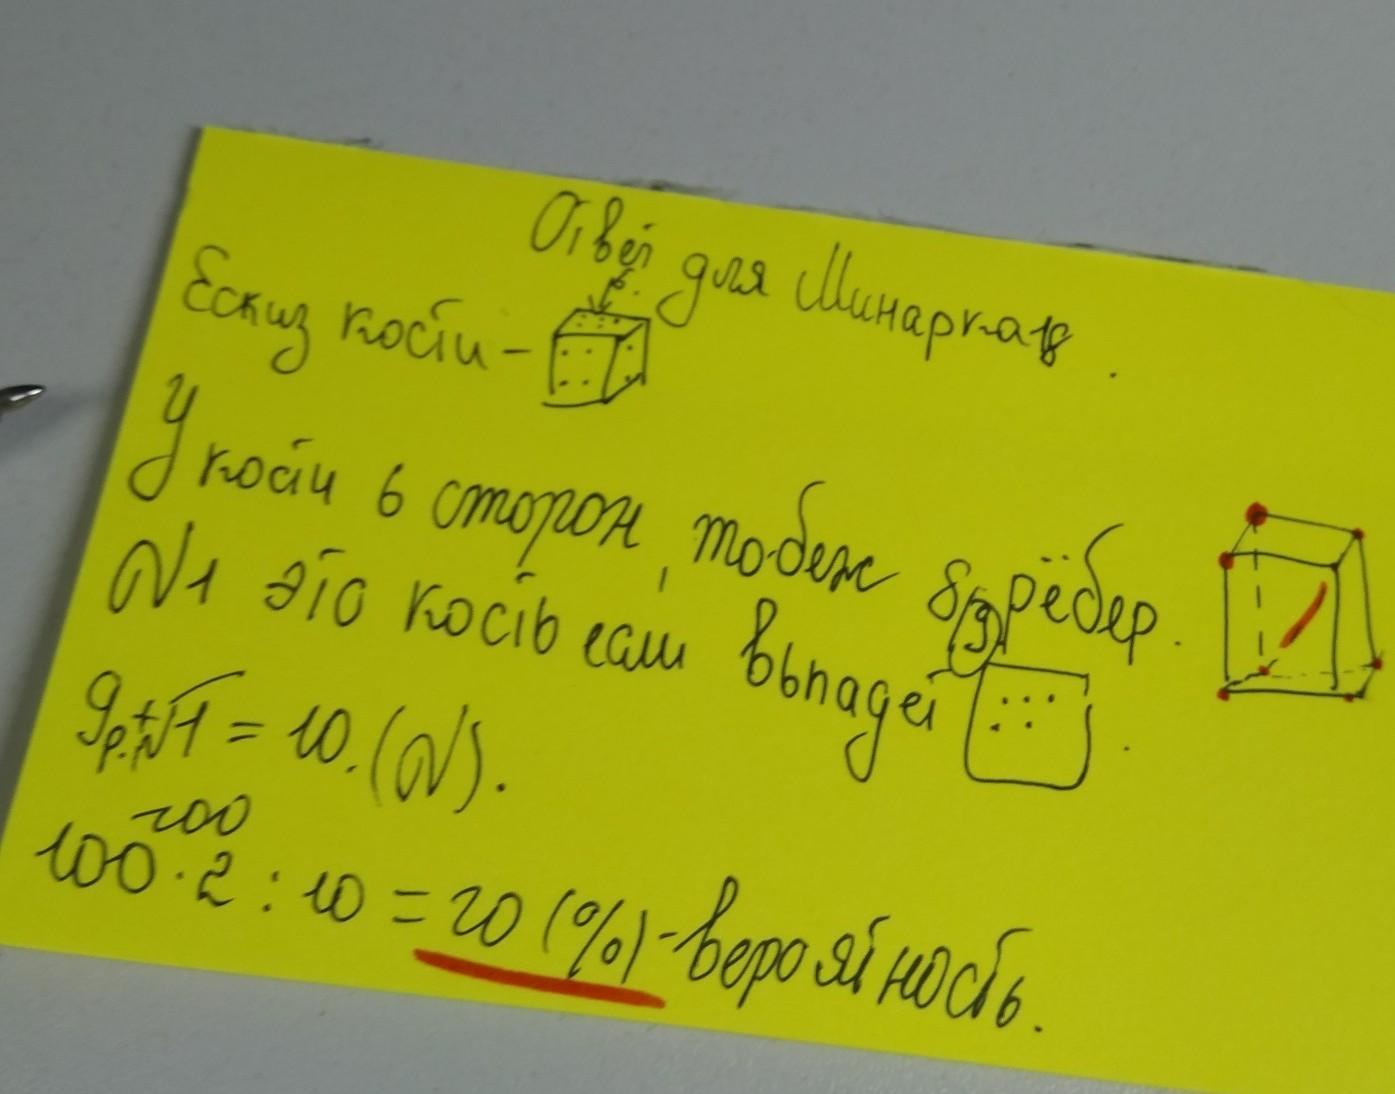 Ответ для
Ескиз кости -
У кости 6 сторон, тобеж 8 рёбер.
N1 это кость если выпадет
= 10. (N).
200
100 · 2 : 10 = 20 (%) - вероятность.